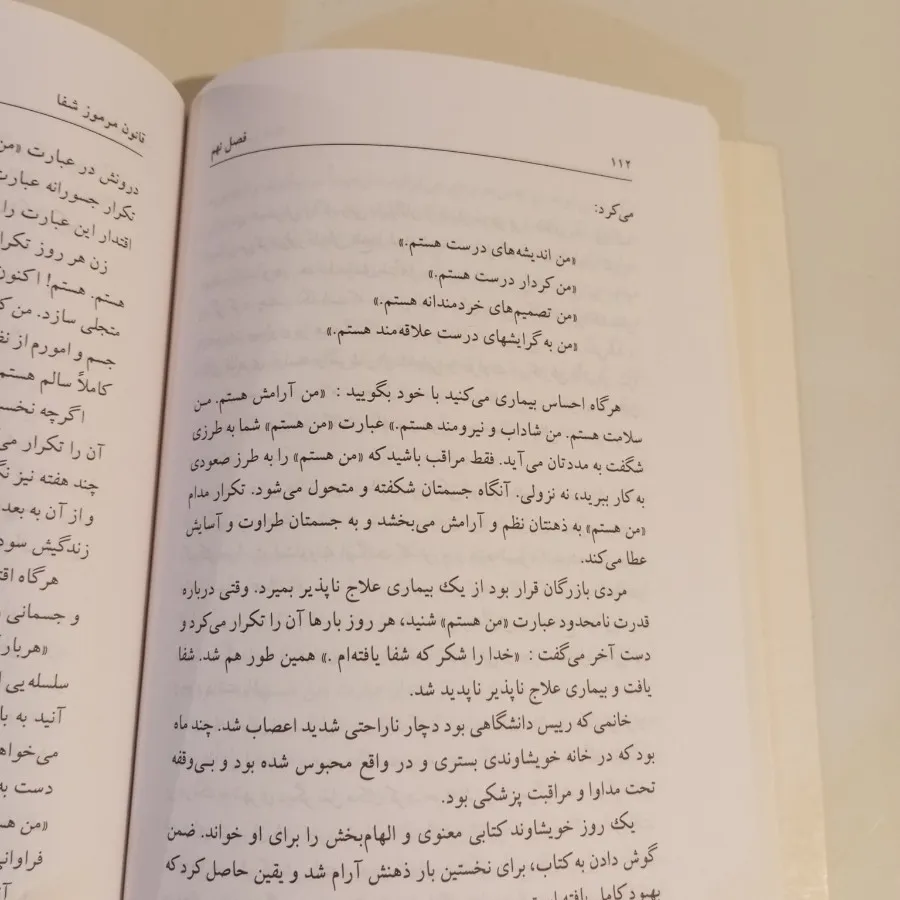 ۱۱۲
فصل نهم
می‌کرد:
«من اندیشه‌های درست هستم.»
«من کردار درست هستم.»
«من تصمیم‌های خردمندانه هستم.»
«من به گرایشهای درست علاقه‌مند هستم.»
هرگاه احساس بیماری می‌کنید با خود بگویید : «من آرامش هستم. من
سلامت هستم. من شاداب و نیرومند هستم.» عبارت «من هستم» شما به طرزی
شگفت به مددتان می‌آید. فقط مراقب باشید که «من هستم» را به طرز صعودی
به کار ببرید، نه نزولی. آنگاه جسمتان شکفته و متحول می‌شود. تکرار مدام
«من هستم» به ذهنتان نظم و آرامش می‌بخشد و به جسمتان طراوت و آسایش
عطا می‌کند.
مردی بازرگان قرار بود از یک بیماری علاج ناپذیر بمیرد. وقتی درباره
قدرت نامحدود عبارت «من هستم» شنید، هر روز بارها آن را تکرار می‌کرد و
دست آخر می‌گفت : «خدا را شکر که شفا یافته‌ام .» همین طور هم شد. شفا
یافت و بیماری علاج ناپذیر ناپدید شد.
خانمی که رییس دانشگاهی بود دچار ناراحتی شدید اعصاب شد. چند ماه
بود که در خانه خویشاوندی بستری و در واقع محبوس شده بود و بی‌وقفه
تحت مداوا و مراقبت پزشکی بود.
یک روز خویشاوند کتابی معنوی و الهام‌بخش را برای او خواند. ضمن
گوش دادن به کتاب، برای نخستین بار ذهنش آرام شد و یقین حاصل کرد که
بهبود کامل یافته
قانون مرموز شفا
درونش در عبارت «من
تکرار جسورانه عبارت
اقتدار این عبارت را
زن هر روز تکرا
هستم. هستم! اکنون
متجلی سازد. من ک
جسم و امورم از نظ
کاملاً سالم هستم
اگرچه نخست
آن را تکرار می
چند هفته نیز نگ
و از آن به بعد
زندگیش سود
هرگاه اقت
و جسمانی
«هربار
سلسله‌یی ا
آنید به با
می‌خواه
دست به
«من هس
فراوانی